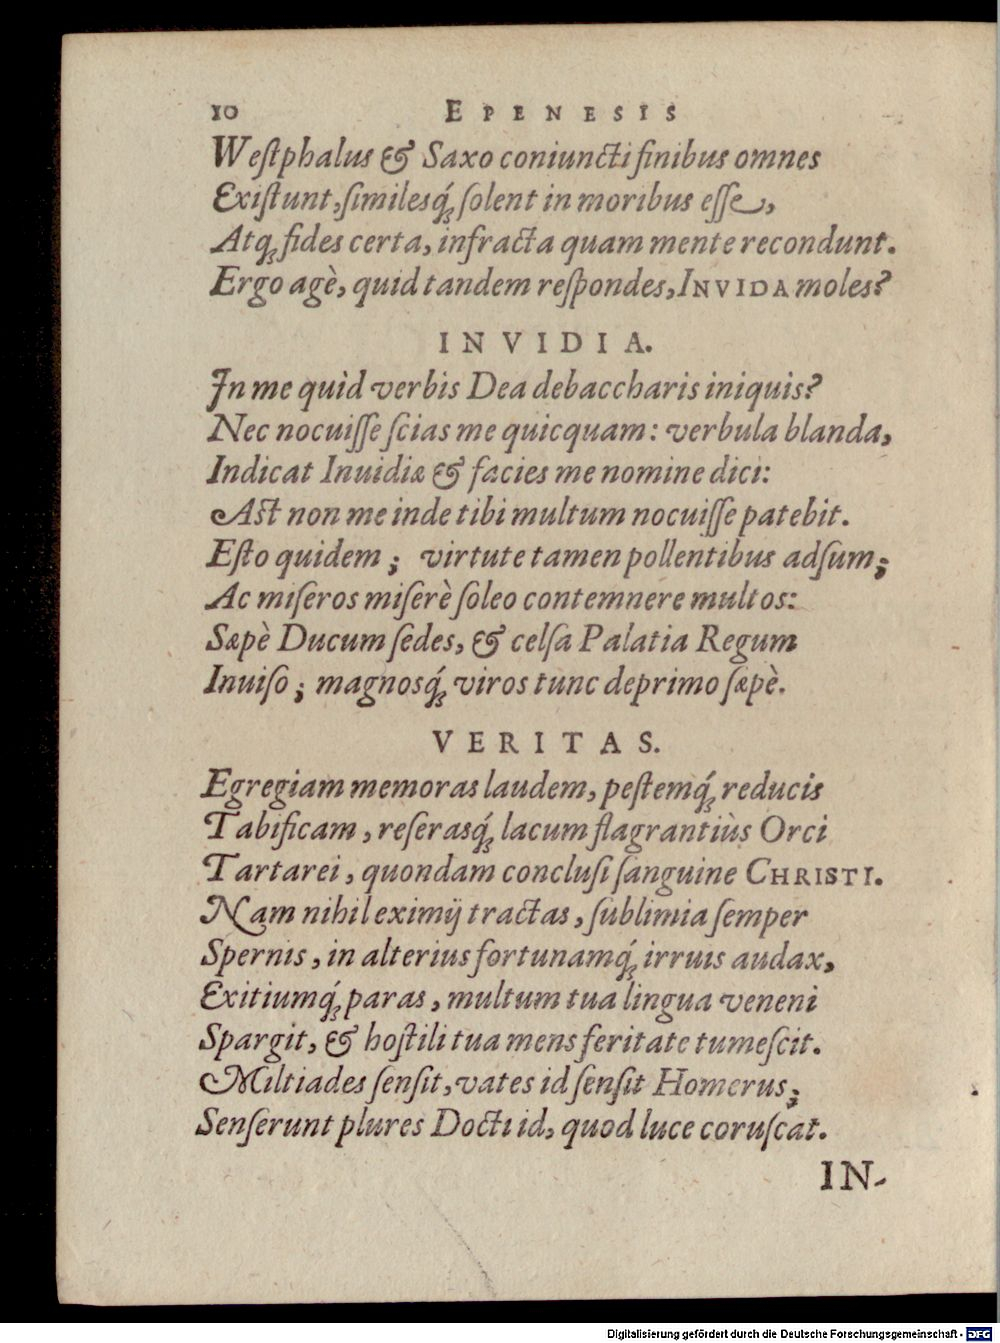 10 EPENESIS
Weſtphalus & Saxo coniuncti finibus omnes
Exiſtunt, ſimilesq́; ſolent in moribus eſſe,
Atq; fides certa, infracta quam mente recondunt.
Ergo agè, quid tandem reſpondes, INVIDA moles?
INVIDIA.
In me quid verbis Dea debaccharis iniquis?
Nec nocuiſſe ſcias me quicquam: verbula blanda,
Indicat Inuidiæ & facies me nomine dici:
Aſt non me inde tibi multum nocuiſſe patebit.
Eſto quidem; virtute tamen pollentibus adſum;
Ac miſeros miſerè ſoleo contemnere multos:
Sæpè Ducum ſedes, & celſa Palatia Regum
Inuiſo; magnosq́; viros tunc deprimo ſæpè.
VERITAS.
Egregiam memoras laudem, peſtemq́; reducis
Tabificam, reſerasq́; lacum flagrantiùs Orci
Tartarei, quondam concluſi ſanguine CHRISTI.
Nam nihil eximij tractas, ſublimia ſemper
Spernis, in alterius fortunamq́; irruis audax,
Exitiumq́; paras, multum tua lingua veneni
Spargit, & hoſtili tua mens feritate tumeſcit.
Miltiades ſenſit, vates id ſenſit Homerus;
Senſerunt plures Docti id, quod luce coruſcat.
IN-
Digitalisierung gefördert durch die Deutsche Forschungsgemeinschaft - DFG